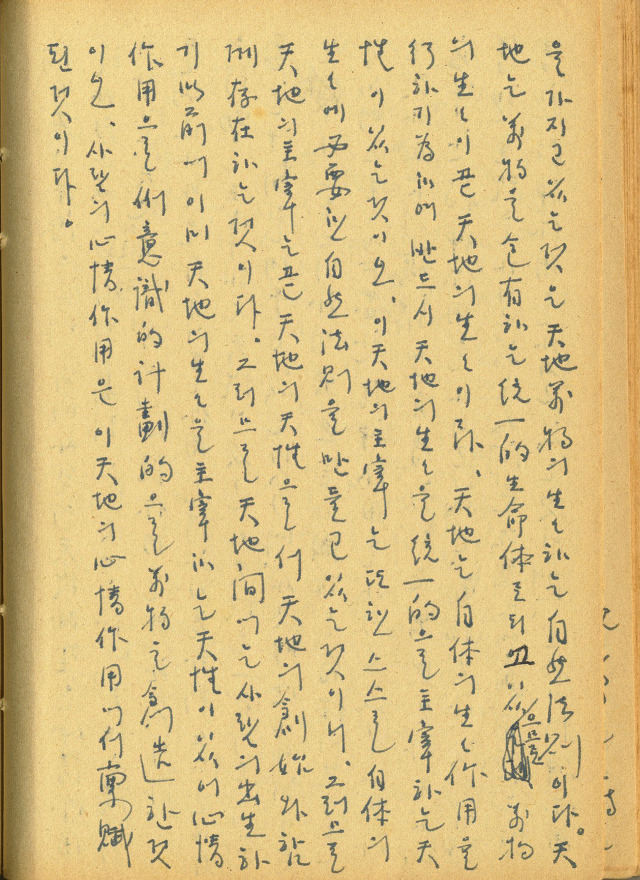 을가지고있는것은天地萬物의生生하는自然法則이다。天
地는萬物을包有하는統一的生命体로되고있으므로萬物
의生生이곧天地의生生이라、天地는自体의生生作用을
行하기為하여반드시天地의生生을統一的으로主宰하는天
性이있는것이오、이天地의主宰는또한스스로自体의
生生에必要한自然法則을만들고있는것이니、그러므로
天地의主宰는곧天地의天性으로서天地의創始와함
께存在하는것이다。그러므로天地間에는사람의出生하
기以前에이미天地의生生을主宰하는天性이있어心情
作用으로써意識的計劃的으로萬物을創造한것
이오、사람의心情作用은이天地의心情作用에서稟賦
된것이다。